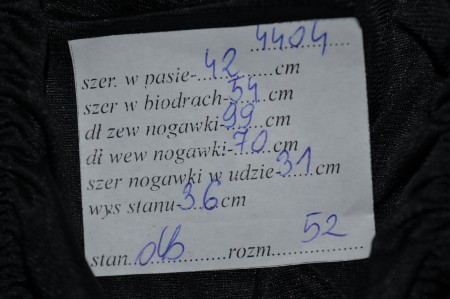 4404
szer. w pasie-...42...cm
szer w biodrach-54...cm
dł zew nogawki-99...cm
dł wew nogawki-70...cm
szer nogawki w udzie-31...cm
wys stanu-36cm
stan...db...rozm...52...